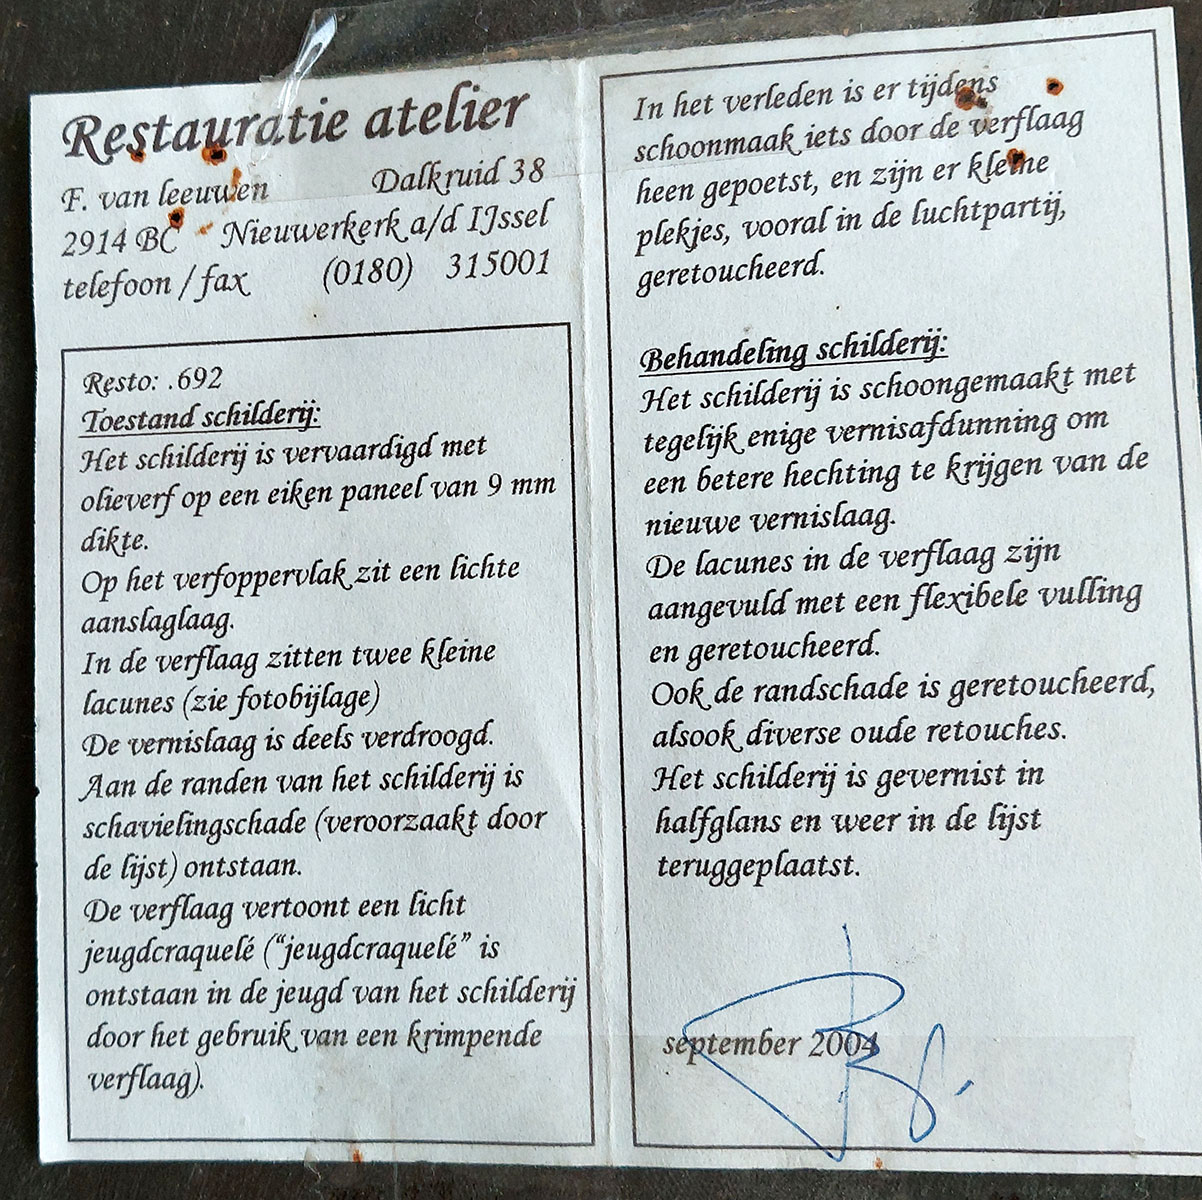 Restauratie atelier
F. van leeuwen Dalkruid 38
2914 BC Nieuwerkerk a/d IJssel
telefoon / fax (0180) 315001
Resto: .692
Toestand schilderij:
Het schilderij is vervaardigd met
olieverf op een eiken paneel van 9 mm
dikte.
Op het verfoppervlak zit een lichte
aanslaglaag.
In de verflaag zitten twee kleine
lacunes (zie fotobijlage)
De vernislaag is deels verdroogd.
Aan de randen van het schilderij is
schavielingschade (veroorzaakt door
de lijst) ontstaan.
De verflaag vertoont een licht
jeugdcraquelé (“jeugdcraquelé” is
ontstaan in de jeugd van het schilderij
door het gebruik van een krimpende
verflaag).
In het verleden is er tijdens
schoonmaak iets door de verflaag
heen gepoetst, en zijn er kleine
plekjes, vooral in de luchtpartij,
geretoucheerd.
Behandeling schilderij:
Het schilderij is schoongemaakt met
tegelijk enige vernisafdunning om
een betere hechting te krijgen van de
nieuwe vernislaag.
De lacunes in de verflaag zijn
aangevuld met een flexibele vulling
en geretoucheerd.
Ook de randschade is geretoucheerd,
alsook diverse oude retouches.
Het schilderij is gevernist in
halfglans en weer in de lijst
teruggeplaatst.
september 2004